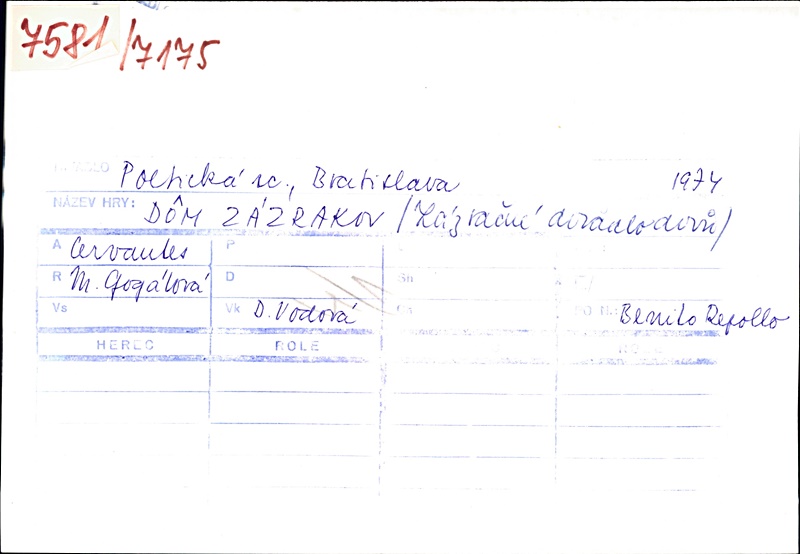 7581/7175
Poetická sc., Bratislava 1974
NÁZEV HRY: DÔM ZÁZRAKOV (Zázračné divadlo divů)
A Cervantes P
R M. Gogálová D Sn
Vs Vk D. Vodová Benito Repollo
HEREC ROLE